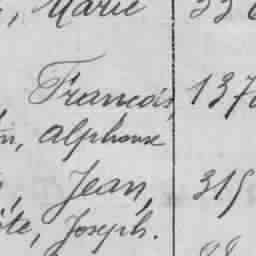 , Marie 33
François, 137
in, alphonse
, Jean, 319
ôte, Joseph.